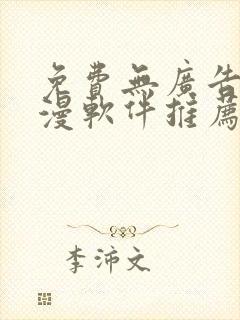 免費無廣告
漫軟件推薦
李沛文